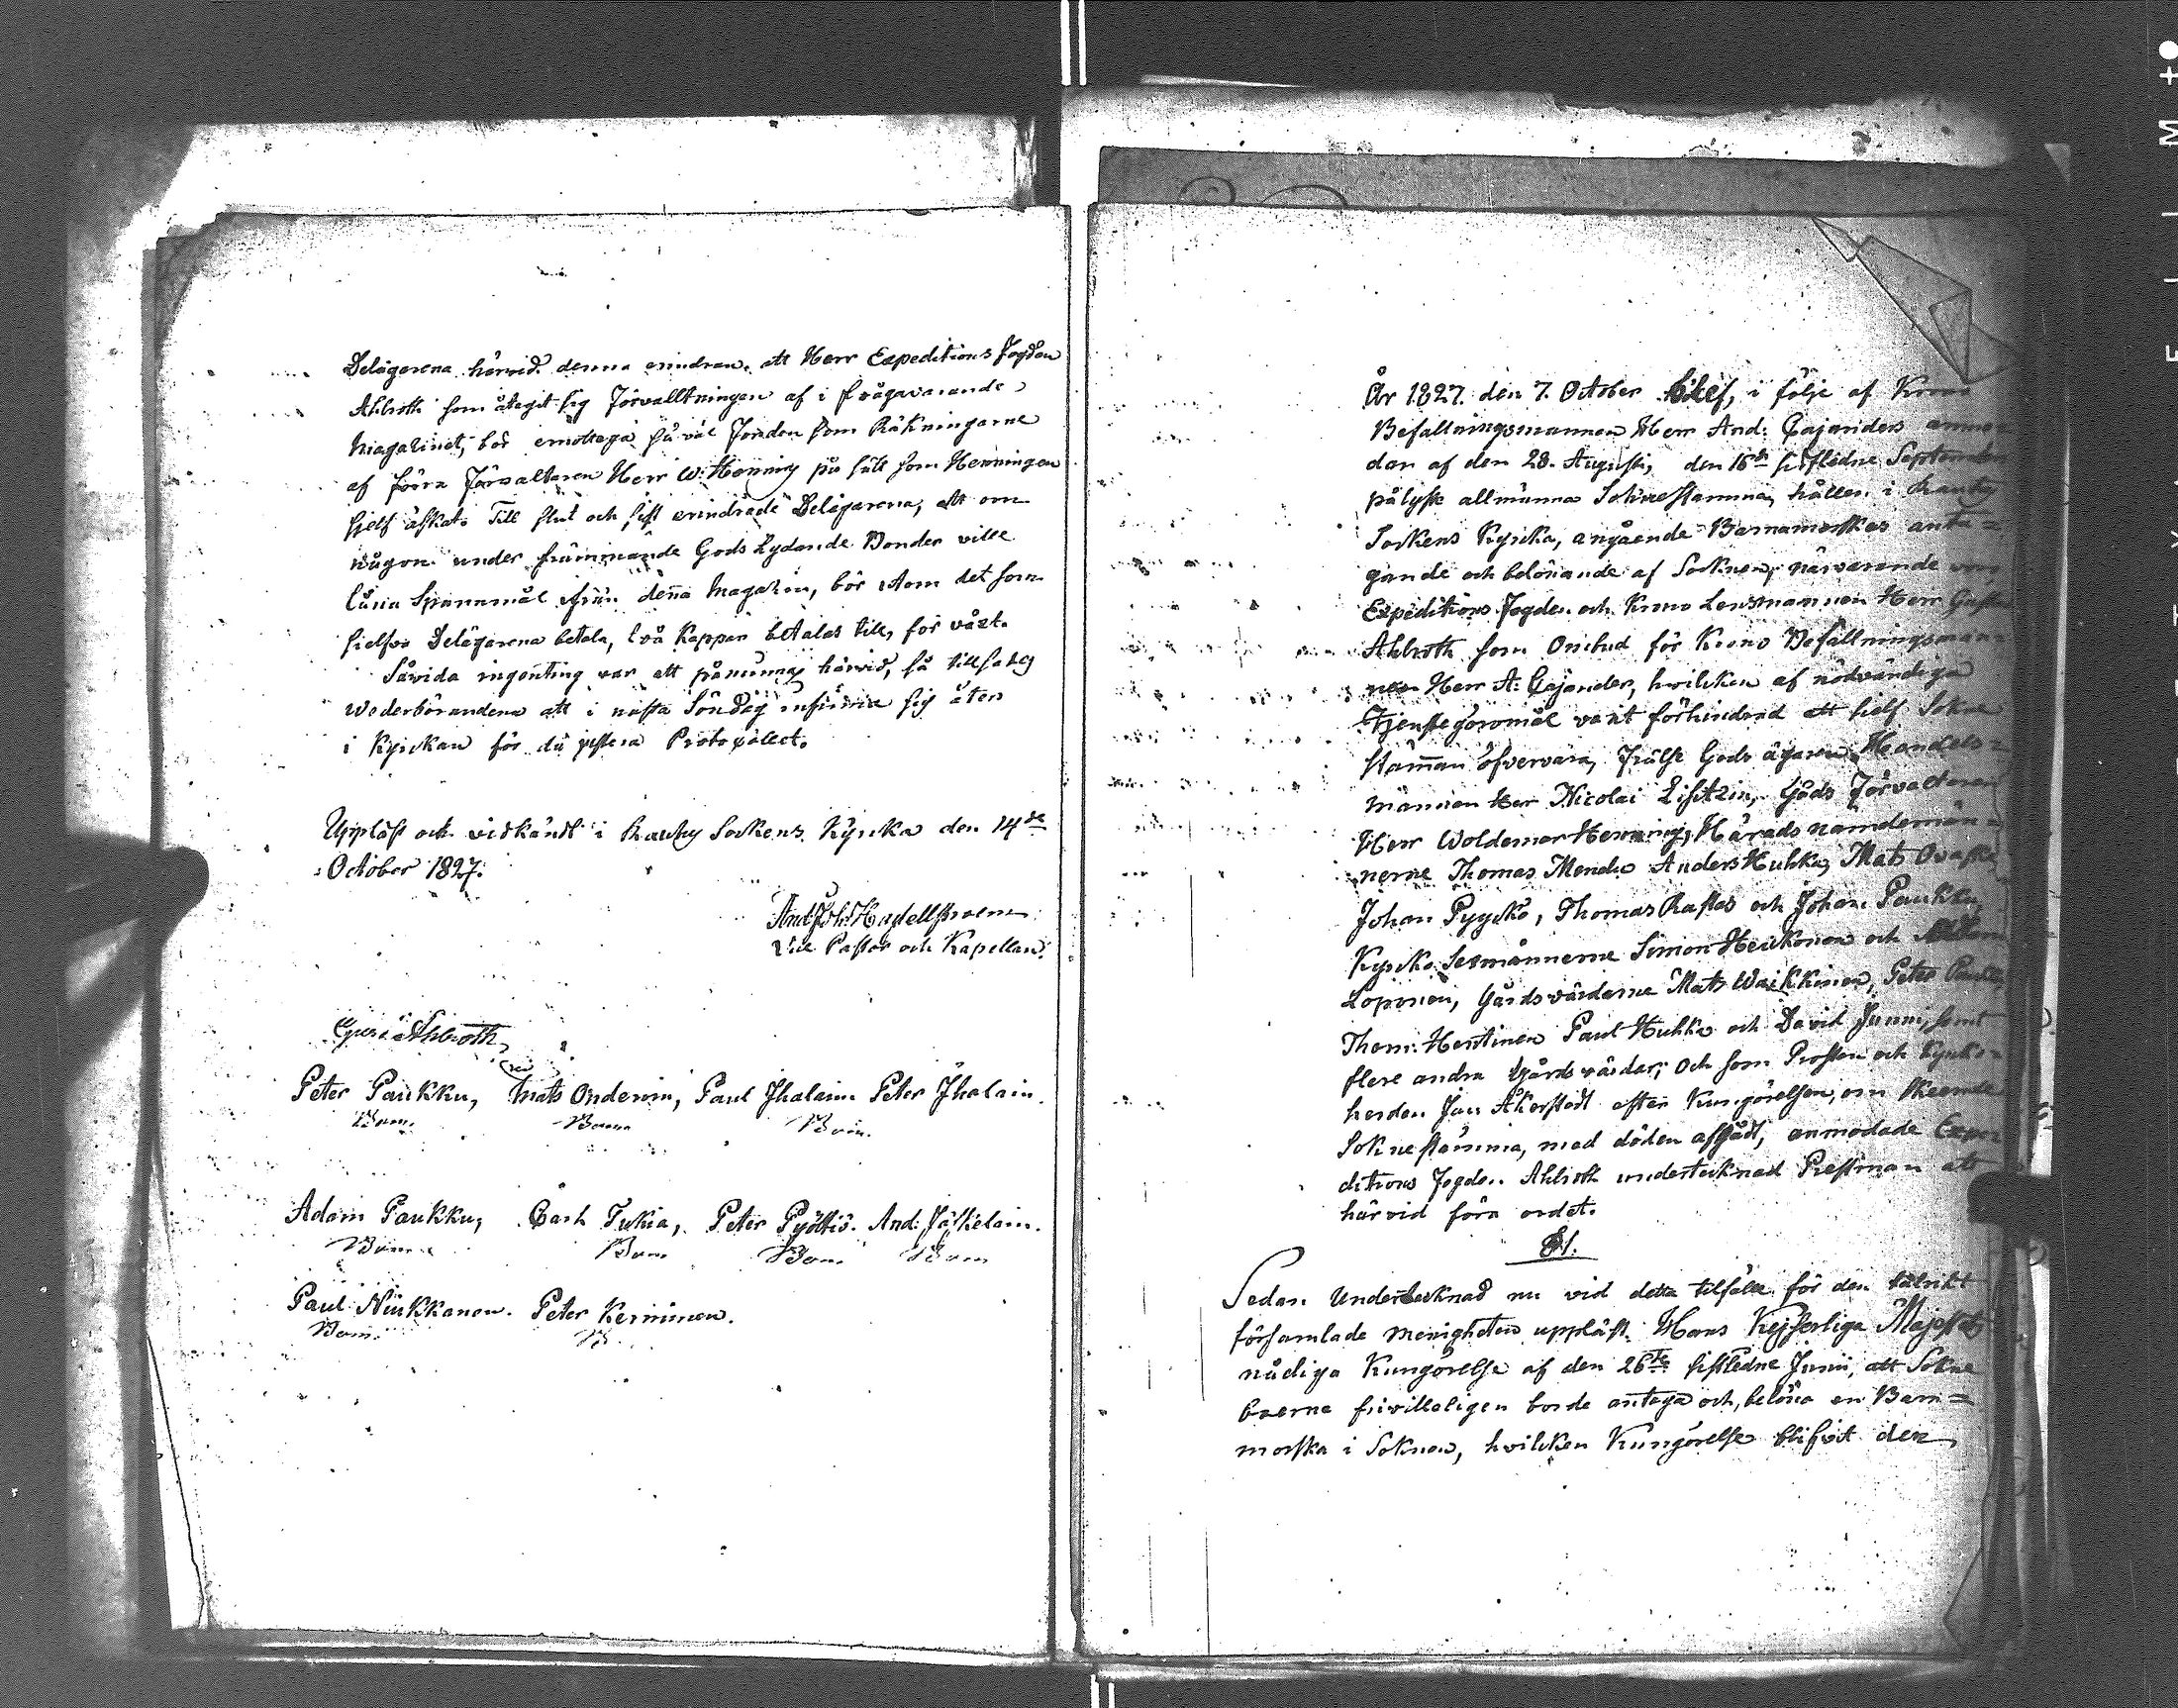 Delägarena härvid denna erindran, att Herr Expeditions Fogden
Ahlroth som åtegit sig Förvalltningen af i frågavarande
Magazinet, bör emottaga så väl Fonden som Räkningarne
af förra Förvaltaren Herr W: Henning på sätt som Henningen
sjelf äskat. Till slut och sist erindrade Delägarena, att om
någon under främmande Gods Lydande Bonder ville
låna Spannmål ifrån dena Magazin, bör utom det som
sielfva Delägarena betala, två Kappar betalas till, för växt.
Såvida ingenting var att påminna härvid, så tillsades
wederbörandena att i nästa Söndag infinna sig åter
i Kyrckan för då justera Protocollet.
Uppläst och vidkändt i Rauthu Sockens Kyrcka den 14de
October 1827.
And Joh: Hagellstroem
Vice Pastor och Kapellan.
Gust: Ahlroth
Peter Paukku, Mats Onderoin, Paul Ihalain Peter Ihalain.
Bom. Bom. Bom.
Adam Paukku, Carl Tukia, Peter Pyöttiö. And: Jäskelain.
Bom Bom Bom Bom
Paul Niukkanen. Peter Kerninen.
Bom. B
År 1827. den 7. October blef, i följe af Krono
Befallningsmannen Herr And: Cajanders anmo=
dan af den 28. Augusti, den 16de sistledne September
pålyste allmänna Sokne stamma, hållen i Rauthu
Sockens Kyrcka, angående Barnamorskas anta=
gande och belönande af Socknen, närvarande voro
Expeditions Fogden och Krono Lensmannen Herr Gustaf
Ahlroth som Ombud för Krono Befallningsman=
nen Herr A: Cajander, hvilcken af nödvändiga
Tjenstegöromål varit förhindrad att sjelf Sokne
Stämman öfvervara, Frälse Gods ägaren Handels=
mannen Herr Nicolai Lisitzin, Gods Förvaltaren
Herr Woldemar Henning, Härads nämdemän=
nerne Thomas Mendu Anders Huhka, Mats Ovaska
Johan Pyyckö, Thomas Rastas och Johan Paukku,
Kyrcko Sexmännerne Simon Heickonen och
Loponen, Gårdsvärdarne Mats Waikkinen, Peter Paukku,
Thom: Hentinen Paul Huhka och David Junni, samt
flere andra Gårds värdar; Och som Prosten och Kyrko=
herden Jan Åkerstedt efter Kungörelsen, om skeende
Sokne stämma, med döden afgådt, anmodade Expe=
ditions Fogden Ahlroth undertecknad Prestman att
härvid föra ordet.
§ 1.
Sedan Undertecknad nu vid detta tilfälle för den talrikt
församlade menigheten uppläst Hans Kejserliga Majestets
nådiga Kungörelse af den 26te sistledne Junii, att Sokne
boerne frivilleligen borde antaga och belöna en Barn=
morska i Soknen, hvilcken Kungörelse blifvit den